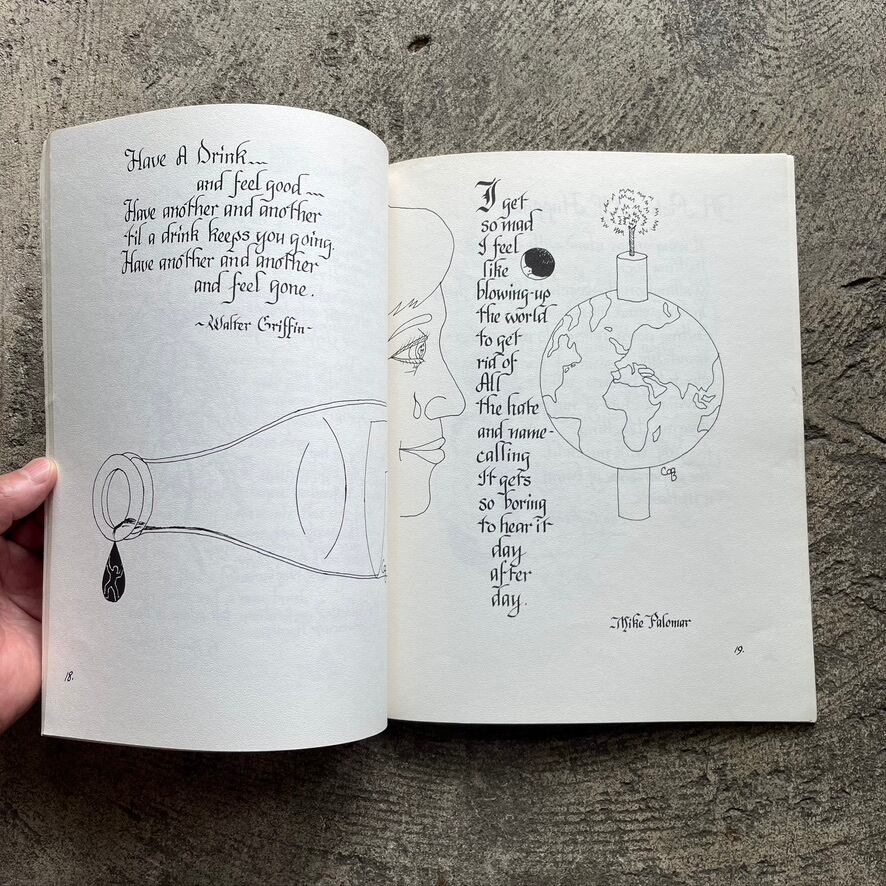 Have A Drink...
and feel good...
Have another and another
til a drink keeps you going.
Have another and another
and feel gone.
~Walter Griffin~
18.
I get
so mad
I feel
like
blowing-up
the world
to get
rid of
All
the hate
and name-
calling
It gets
so boring
to hear it
day
after
day.
~Mike Palomar
19.